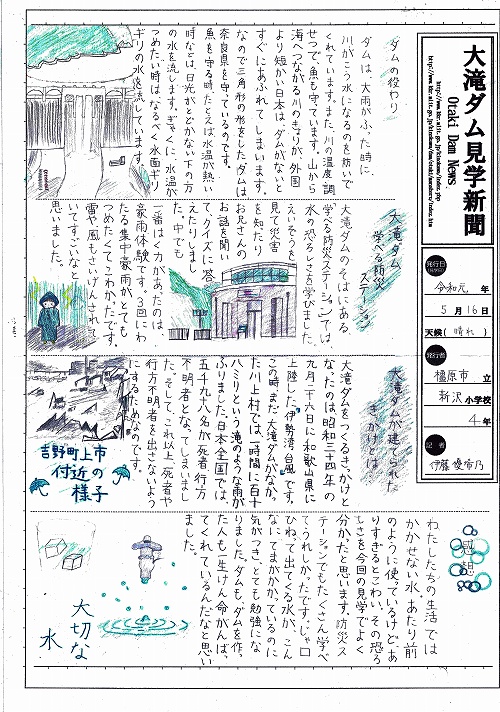 大滝ダム見学新聞
Otaki Dam News
発行日
令和元年
5月16日
天候（晴れ）
発行者
橿原市立
新沢小学校
4年
記者
ダムの役わり
ダムは、大雨がふった時に、
川がこう水になるのを防いで
くれています。また、川の温度調
せつで魚も守ています。山から
海へつながる川のきょりが、外国
より短かい日本は、ダムがないと
すぐにあふれてしまいます。
なので三角形の形をしたダムは
奈良県を守ているのです。
魚を守る時、たとえば水温が熱い
時などは、日光がとどかない下の方
の水を流します。ぎゃくに、水温が
つめたい時は、なるべく水面ギリ
ギリの水を流しています。
大滝ダム
学べる防災
ステーション
大滝ダムのそばにある、
学べる防災ステーションでは、
水の恐ろしさを学びました。
えいぞうを
見て災害
を知たり
お兄さんの
お話を聞い
て、クイズに答
えたりしまし
た。中でも
一番はく力があったのは、
豪雨体験です。3回にわ
たる集中豪雨がとても
つめたくてこわかったです。
雷や風もさいげんされて
いてすごいなと
思いました。
大滝ダムが建てられた
きかけとは
大滝ダムをつくるきっかけと
なったのは昭和三十四年の
九月二十六日に和歌山県に
上陸した伊勢湾台風です。
この時まだ大滝ダムがなか
た川上村では、一時間に百十
八ミリという滝のような雨が
ふりました。日本全国では、
五千九十八名が死者行方
不明者となってしまいまし
た。そして、これ以上、死者や
行方不明者を出さないよう
にするためなのです。
吉野町上市
付近の
様子
感想
わたしたちの生活では
かかせない水、あたり前
のように使っているけど、あ
りすぎるとこわい。その恐ろ
しさを今回の見学でよく
分かったと思います。防災ス
テーションでもたくさん学べ
てうれしかったです。じゃ口
ひねって出てくる水が、こん
なにてまがかかっているのに
気がつき、とても勉強にな
りました。ダムも、ダムを作っ
た人も一生けん命がんば
てくれているんだなと思い
ました。
大切な
水